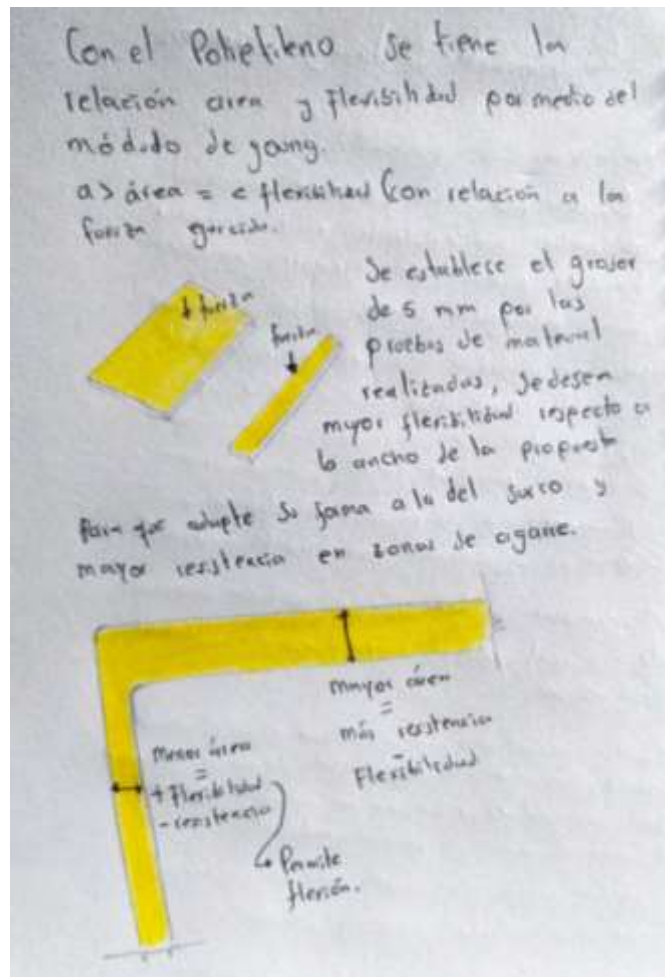 Con el Polietileno se tiene la
relación area y flexibilidad por medio del
módulo de young.
a > área = < flexibilidad Con relación a la
fuerza ejercida.
↓ fuerza
fuerza
Se establece el grosor
de 5 mm por las
pruebas de material
realizadas, se desea
myor flexibilidad respecto a
lo ancho de la propuesta
Para que adapte su forma a la del surco y
mayor resistencia en zonas de agarre.
mayor área
=
más resistencia
-
Flexibilidad
Menor área
=
+ Flexibilidad
- resistencia
Permite
flexión.